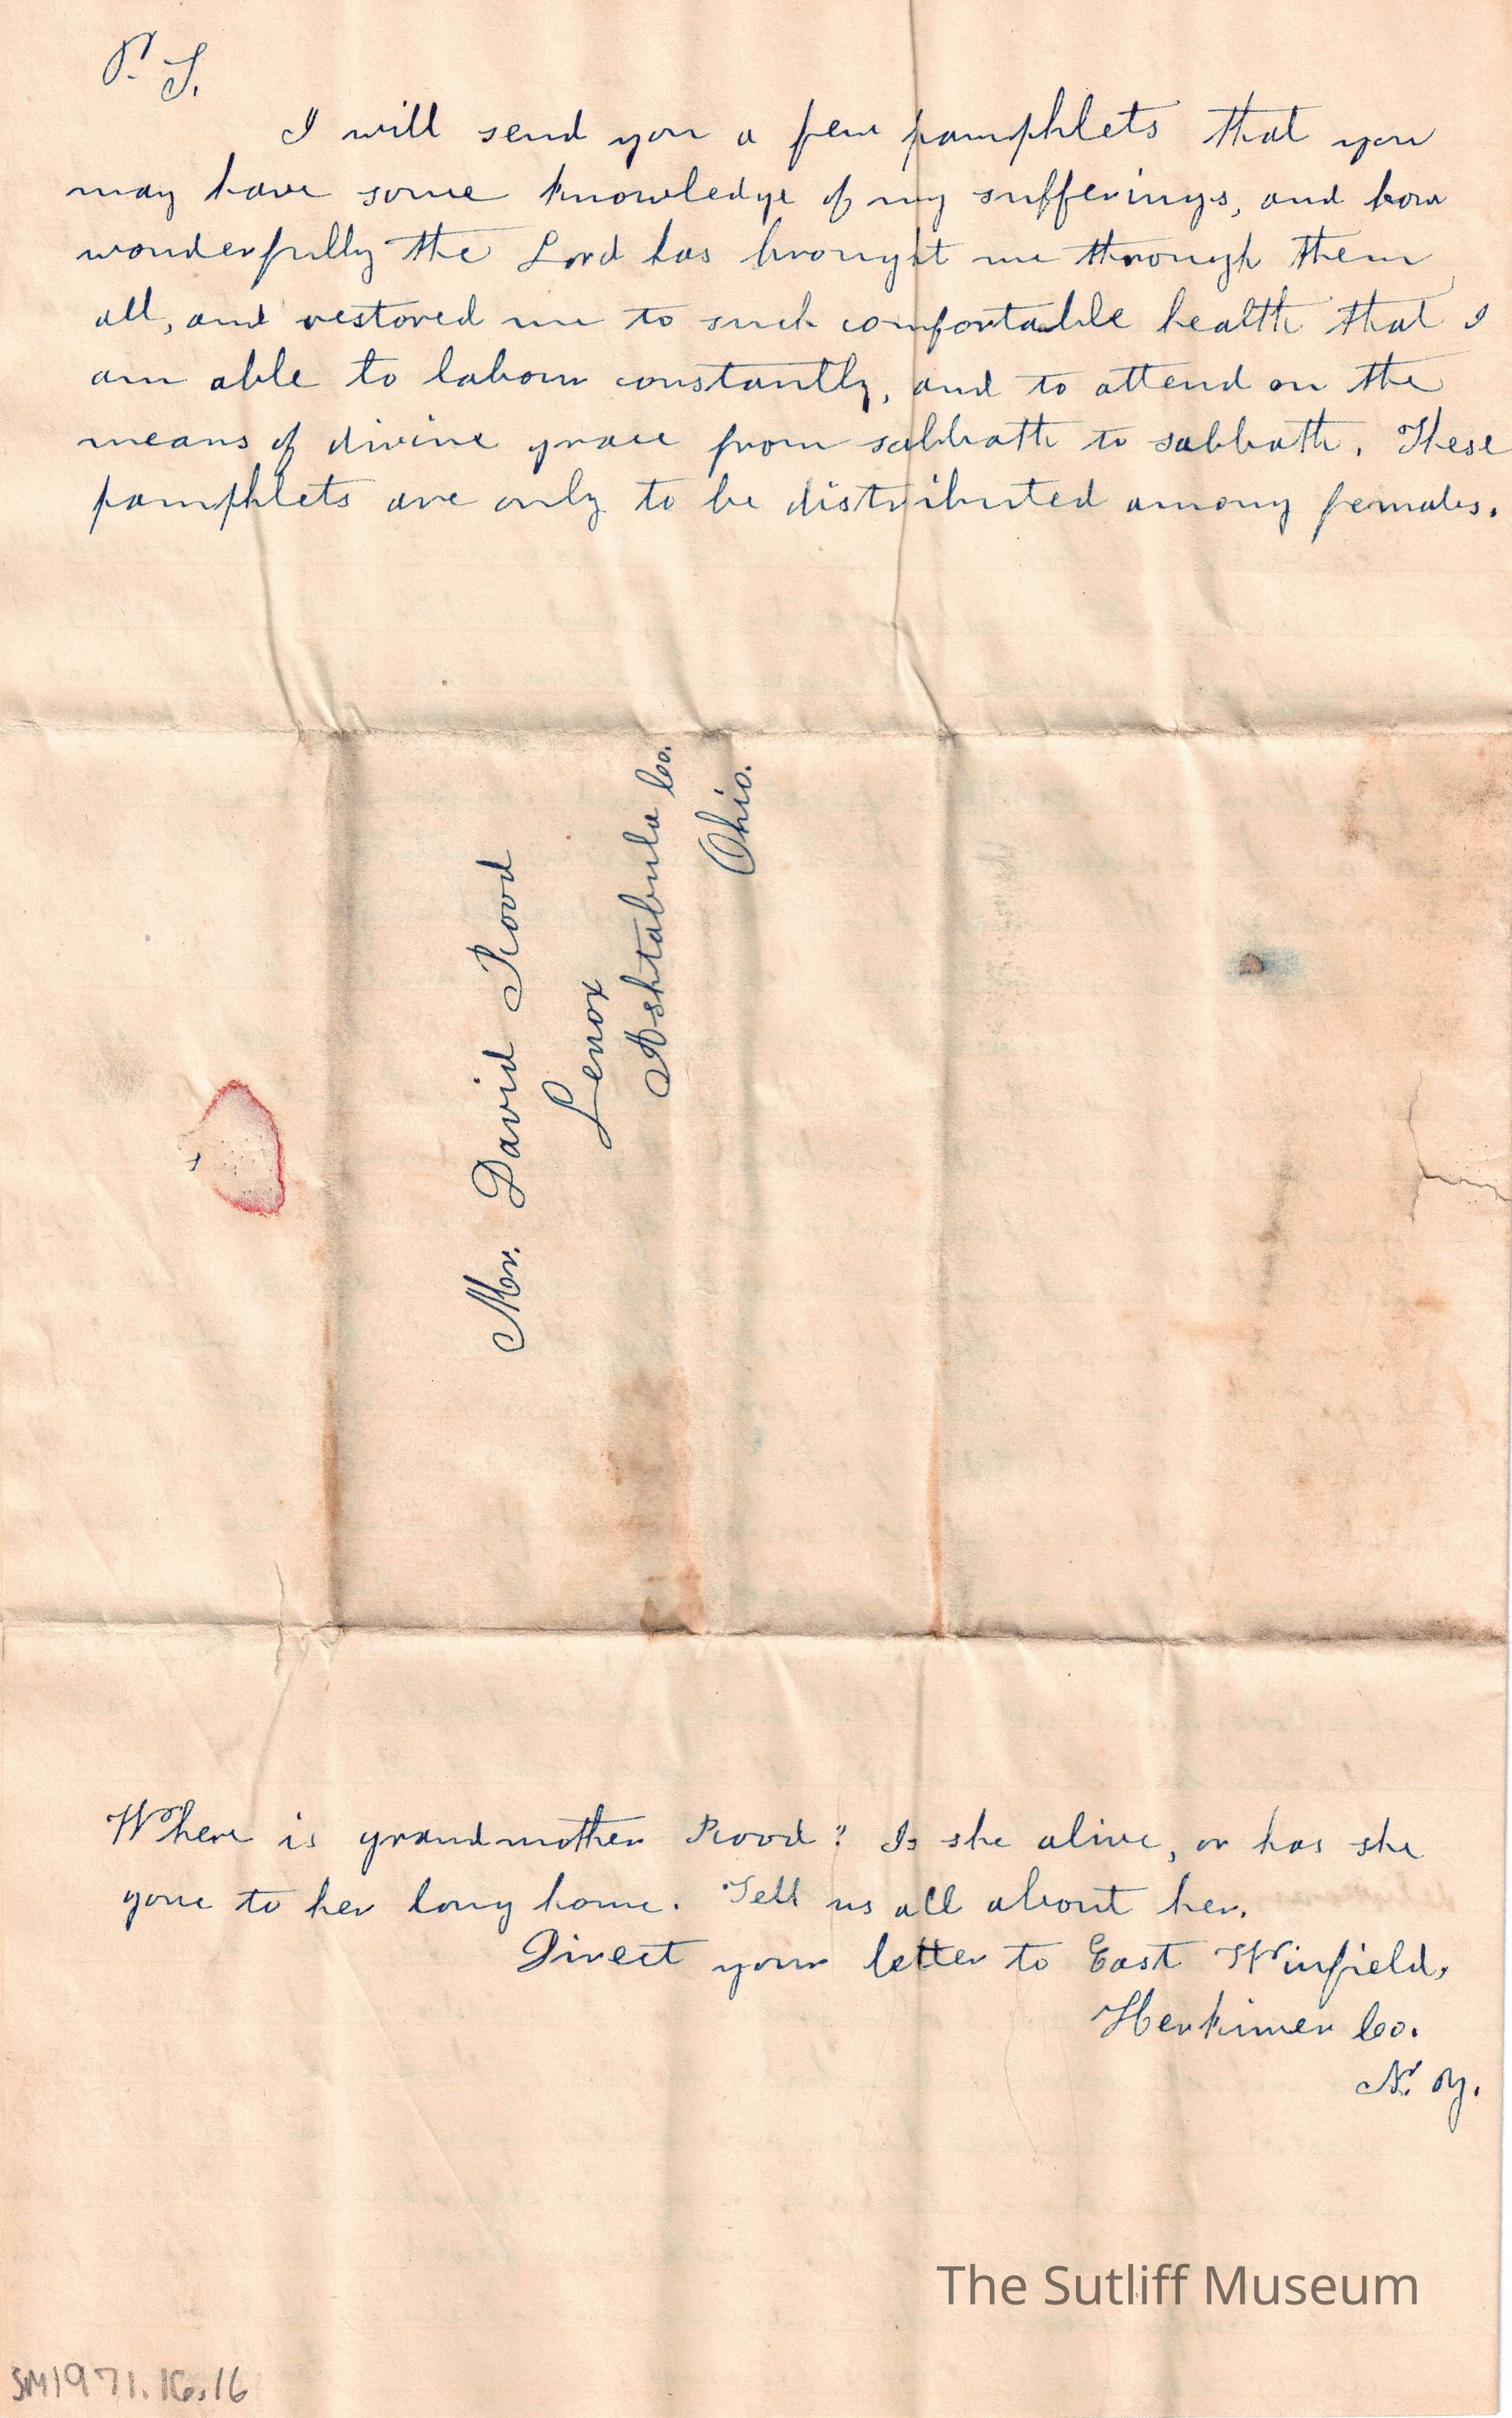 P. S.
I will send you a few pamphlets that you
may have some knowledge of my sufferings, and how
wonderfully the Lord has brought me through them
all, and restored me to such comfortable health that I
am able to labour constantly, and to attend on the
means of divine grace from sabbath to sabbath. These
pamphlets are only to be distributed among females.
Mr. David Rood
Lenox
Ashtabula Co.
Ohio.
Where is grandmother Rood? Is she alive, or has she
gone to her long home. Tell us all about her.
Direct your letter to East Winfield,
Herkimer Co.
N. Y.
The Sutliff Museum
SM1971.16.16